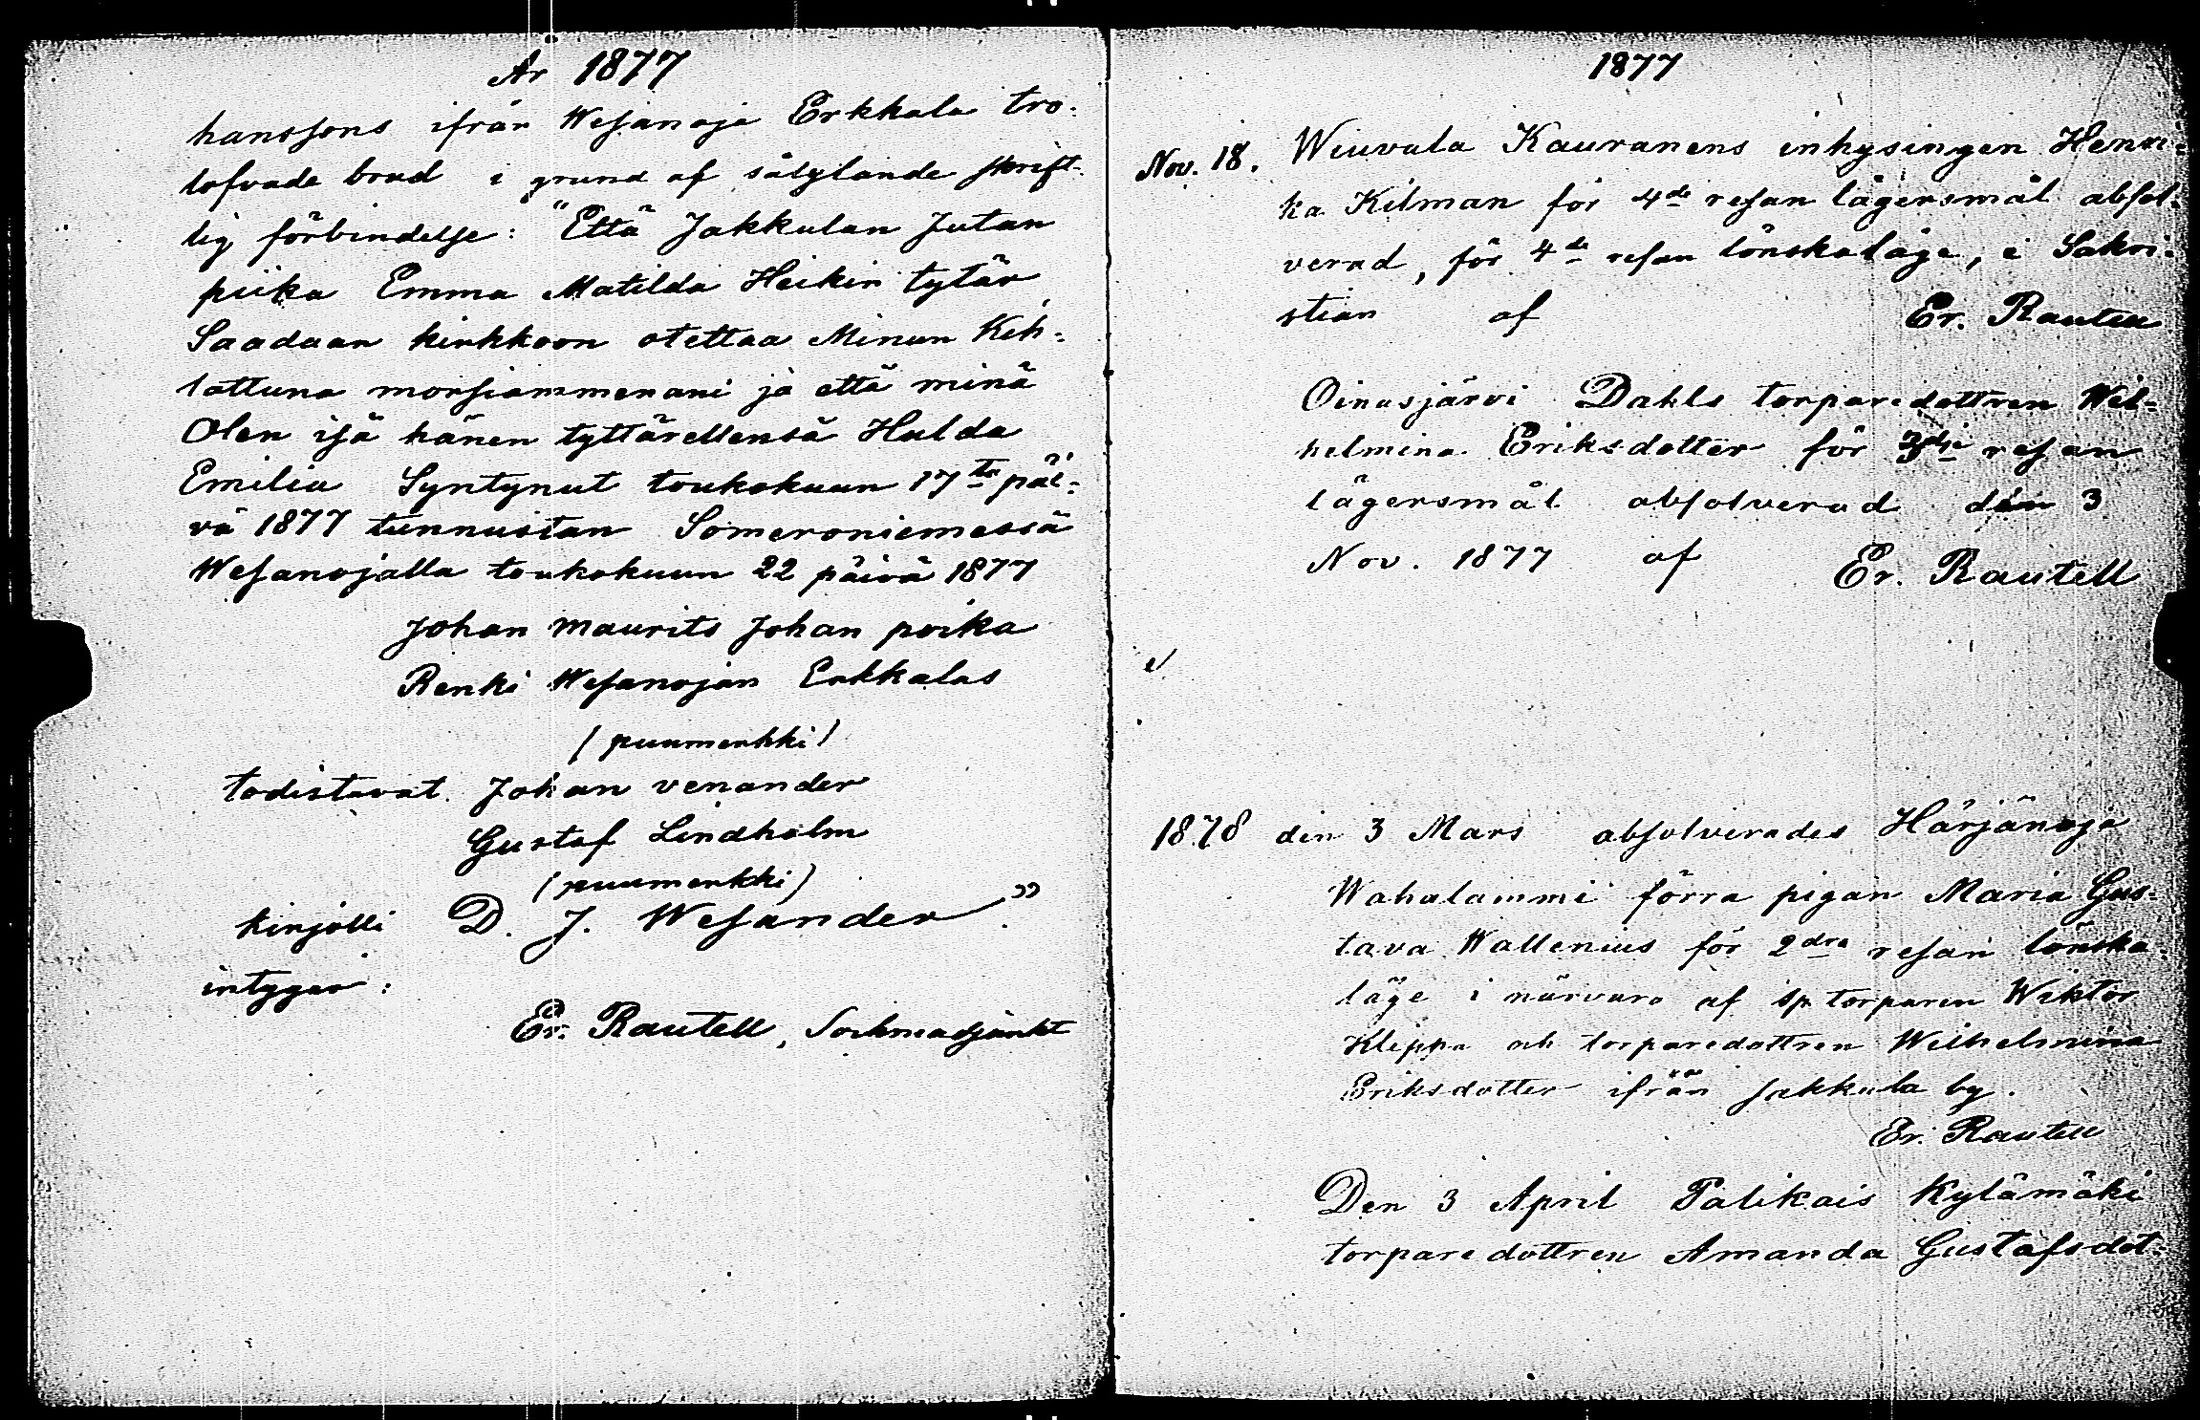 År 1877
hanssons ifrån Wesanoja Erkkala tro-
lofvade brud i grund af sålylande skrift-
lig förbindelse: "Että Jakkulan Jutan
piika Emma Matilda Heikin tytär
Saadaan kirkkoon otettaa Minun Kih-
lattuna morsiammenani ja että minä
Olen isä hänen tyttärellensä Hulda
Emilia Syntynut toukokuun 17ta päi-
vä 1877 tunnustan Someroniemessä
Wesanojalla toukokuun 22 päivä 1877
Johan Maurits Johan poika
Renki Wesanojan Erkkalas
(puumerkki)
todistavat. Johan venander
Gustaf Lindholm
(puumerkki)
kirjotti D. J. Wesander".
intygar:
Er. Rautell, Sockneadjunkt
1877
Nov. 18. Wiuvala Kauranens inhysingen Henri-
ka Kilman för 4de resan lägersmål absol-
verad, för 4de resan lönskaläge, i Sakri-
stian af Er. Rautell
Oinasjärvi Dahls torparedottren Wil-
helmina Eriksdotter för 3dje resan
lägersmål absolverad den 3
Nov. 1877 af Er. Rautell
1878 den 3 Mars absolverades Härjänoja
Wahalammi förra pigan Maria Gus-
tava Wallenius för 2dra resan lönska-
läge i närvaro af sp. torparen Wiktor
Kleppa och torparedottren Wilhelmina
Eriksdotter ifrån Jakkula by.
Er. Rautell
Den 3 April Palikais Kylämäki
torparedottren Amanda Gustafsdot-